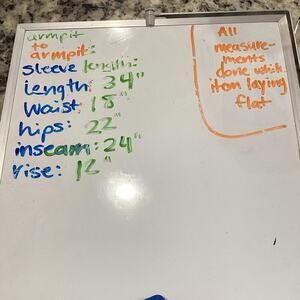 armpit
to
armpit:
Sleeve length:
Length: 34"
Waist 18"
hips: 22"
inseam: 24"
rise: 12"
All
measure-
ments
done while
item laying
flat